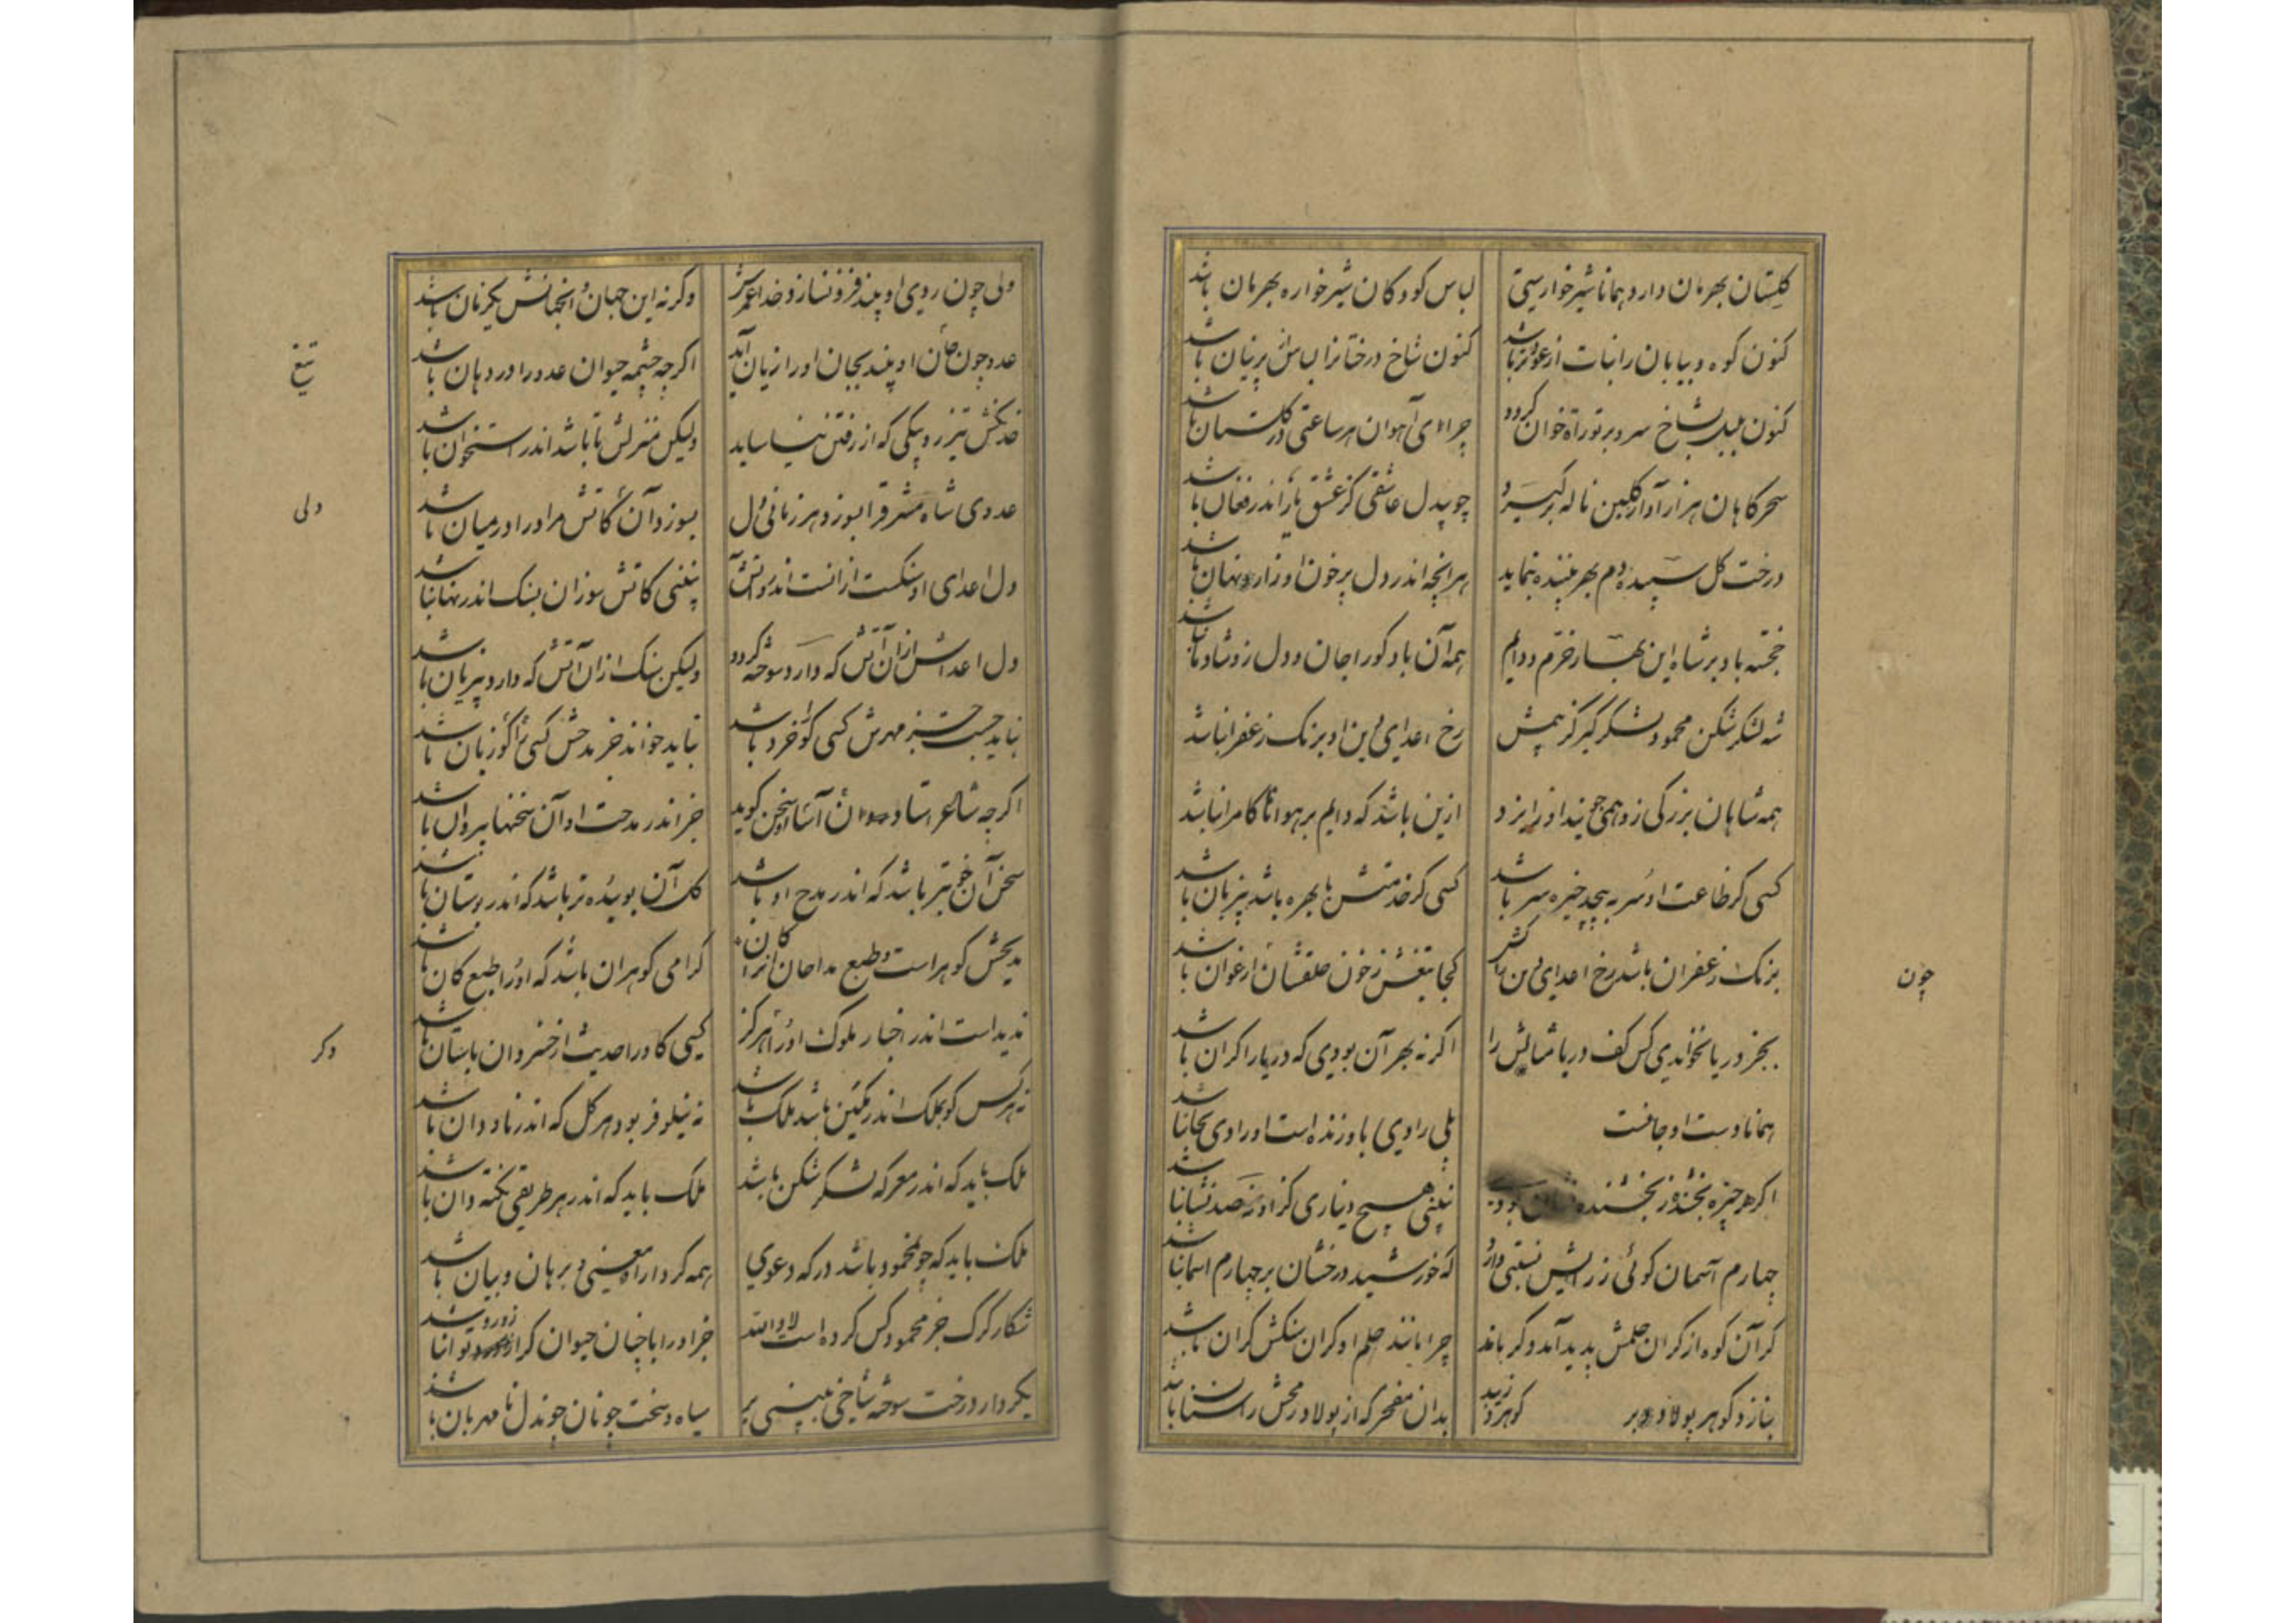 گلستان بهرمان دارد همانا شیرخوارستی
لباس کودکان شیرخواره بهرمان باشد
کنون کوه و بیابان را نبات از
کنون شاخ درختانرا لباس پرنیان باشد
کنون بلبل بشاخ سرو بر توراة خوان کردد
چرای آهوان هر ساعتی در کلستان باشد
سحرکاهان هزارآوا ز کلبن ناله برکیرد
چو بیدل عاشقی کز عشق یار اندر فغان باشد
درخت کل سپیده دم بهر بیننده بنماید
هر انچه اندر دل پرخون او زار و نهان باشد
خجسته باد بر شاه این بهار خرم و دایم
همه آن باد کورا جان و دل زو شادمان باشد
شه لشکرشکن محمود لشکرکیر کز بیمش
رخ اعدای دین او برنک زعفران باشد
همه شاهان بزرکی زو همی جویند او ز ایزد
ازین باشد که دایم بر هواها کامران باشد
کسی کز طاعت او سر به پیچد خیره سر باشد
کسی کز خدمتش با بهره باشد پر زیان باشد
برنک زعفران باشد رخ اعدای دین
کجا تیغش ز خون حلقشان ارغوان باشد
چون
بجز دریا نخواندی کس کف دریا مثالش را
اکر نه بهر آن بودی که دریا را کران باشد
همانا دست او جانست
بلی رادی باو زنده است او رادی بجان باشد
اکر هر چیزه بخشنده ز بخشنده نشان بود
نبینی هیچ دیناری کز او نه صد نشان باشد
چهارم آسمان کوئی ز رایش نسبتی دارد
که خورشید درخشان بر چهارم اسمان باشد
کر آن کوه از کران حلمش پدید آمد و کر ماند
چرا مانند حلم او کران سنکش کران باشد
بنازد کوهر پولاد بر کوهر
بدان مفخر که از پولاد رمحش را سنان باشد
ولی چون روی او بیند فزون سازد خدا عمرش
وکرنه این جهان و انجهانش یکزمان باشد
عدو چون خان او بیند بجان او را زیان آید
اکر چه چشمه حیوان عدو را در دهان باشد
تیغ
خدنکش تیز رو پیکی که از رفتن نیاساید
ولیکن منزلش تا باشد اندر استخوان باشد
عدوی شاه مشرق را بسوزد هر زمانی دل
بسوزد آن کآتش مر او را در میان باشد
ولی
دل اعدای او سنکست ازانست اندرو آتش
نبینی کاتش سوزان بسنک اندر نهان باشد
دل اعداش از ان آتش که دارد سوخته کردد
ولیکن سنک از ان آتش که دارد بی زیان باشد
نباید جست جز مهرش کسی کو را خرد باشد
نباید خواند جز مدحش کسی را کو زبان باشد
اکر چه شاعر استاد آسان سخن کوید
جز اندر مدحت او آن سخنها بی روان باشد
سخن آن خوبتر باشد که اندر مدح او باشد
کل آن بوینده تر باشد که اندر بوستان باشد
مدیحش کوهر است و طبع مداحان کان انرا
کرامی کوهر ان باشد که او را طبع کان باشد
ندید است اندر اخبار ملوک او را هرکز
کسی کاو را حدیث از خسروان باستان باشد
دکر
نه هر کس کو بملک اندر مکین باشد ملک باشد
نه نیلوفر بود هر کل که اندر ناودان باشد
ملک باید که اندر معرکه لشکرشکن باشد
ملک باید که اندر هر طریقی نکته دان باشد
ملک باید که چو محمود باشد در که دعوی
همه کردار او معنی و برهان و بیان باشد
شکار کرک جز محمود کس کرده است لا والله
جز او را با چنان حیوان کرا زور و توان باشد
بکردار درخت سوخته شاخی ببینی بر
سیاه و سخت چونان چون دل نامهربان باشد